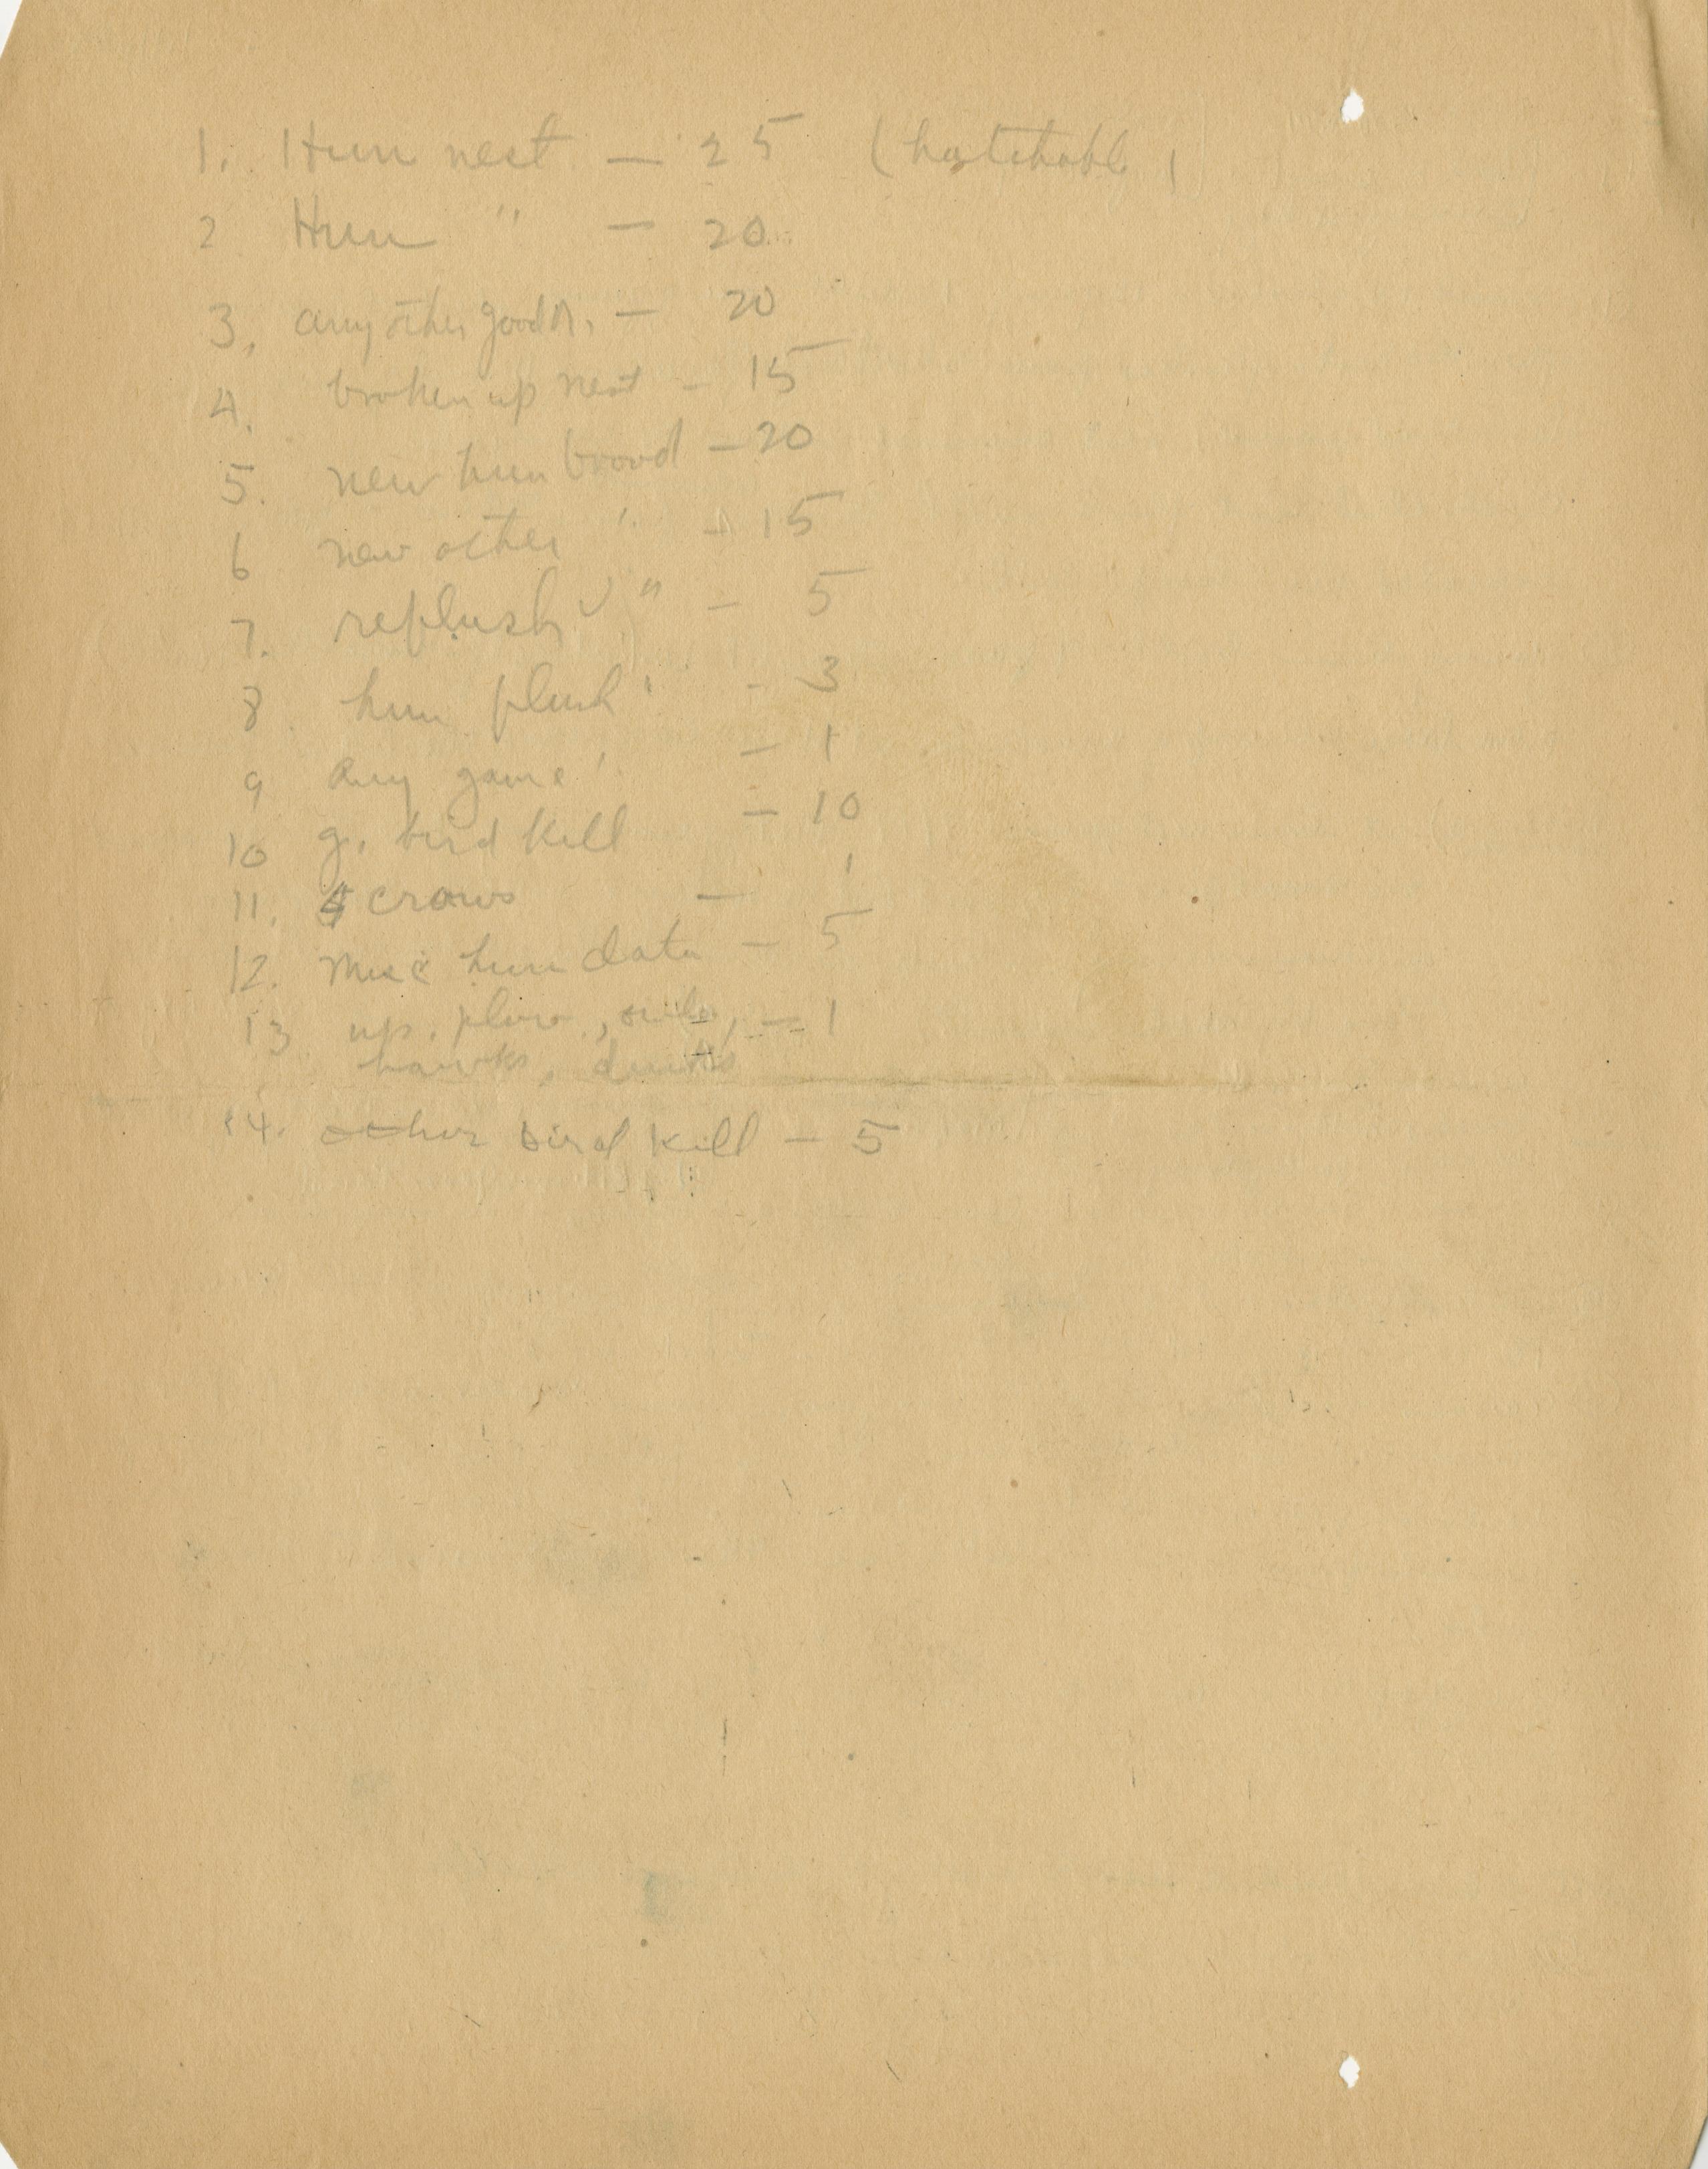 1. Hun nest — 25 (hatchable)
2 Hun " — 20
3. any other good n. — 20
4. broken up nest – 15
5. new hun brood – 20
6 new other " – 15
7. reflush " – 5
8. hun flush " – 3
9 any game " – 1
10 g. bird kill – 10
11. 4 crows – 1
12. Misc hun data – 5
13 up. plover, owls, – 1
hawks, ducks
14. other bird kill – 5